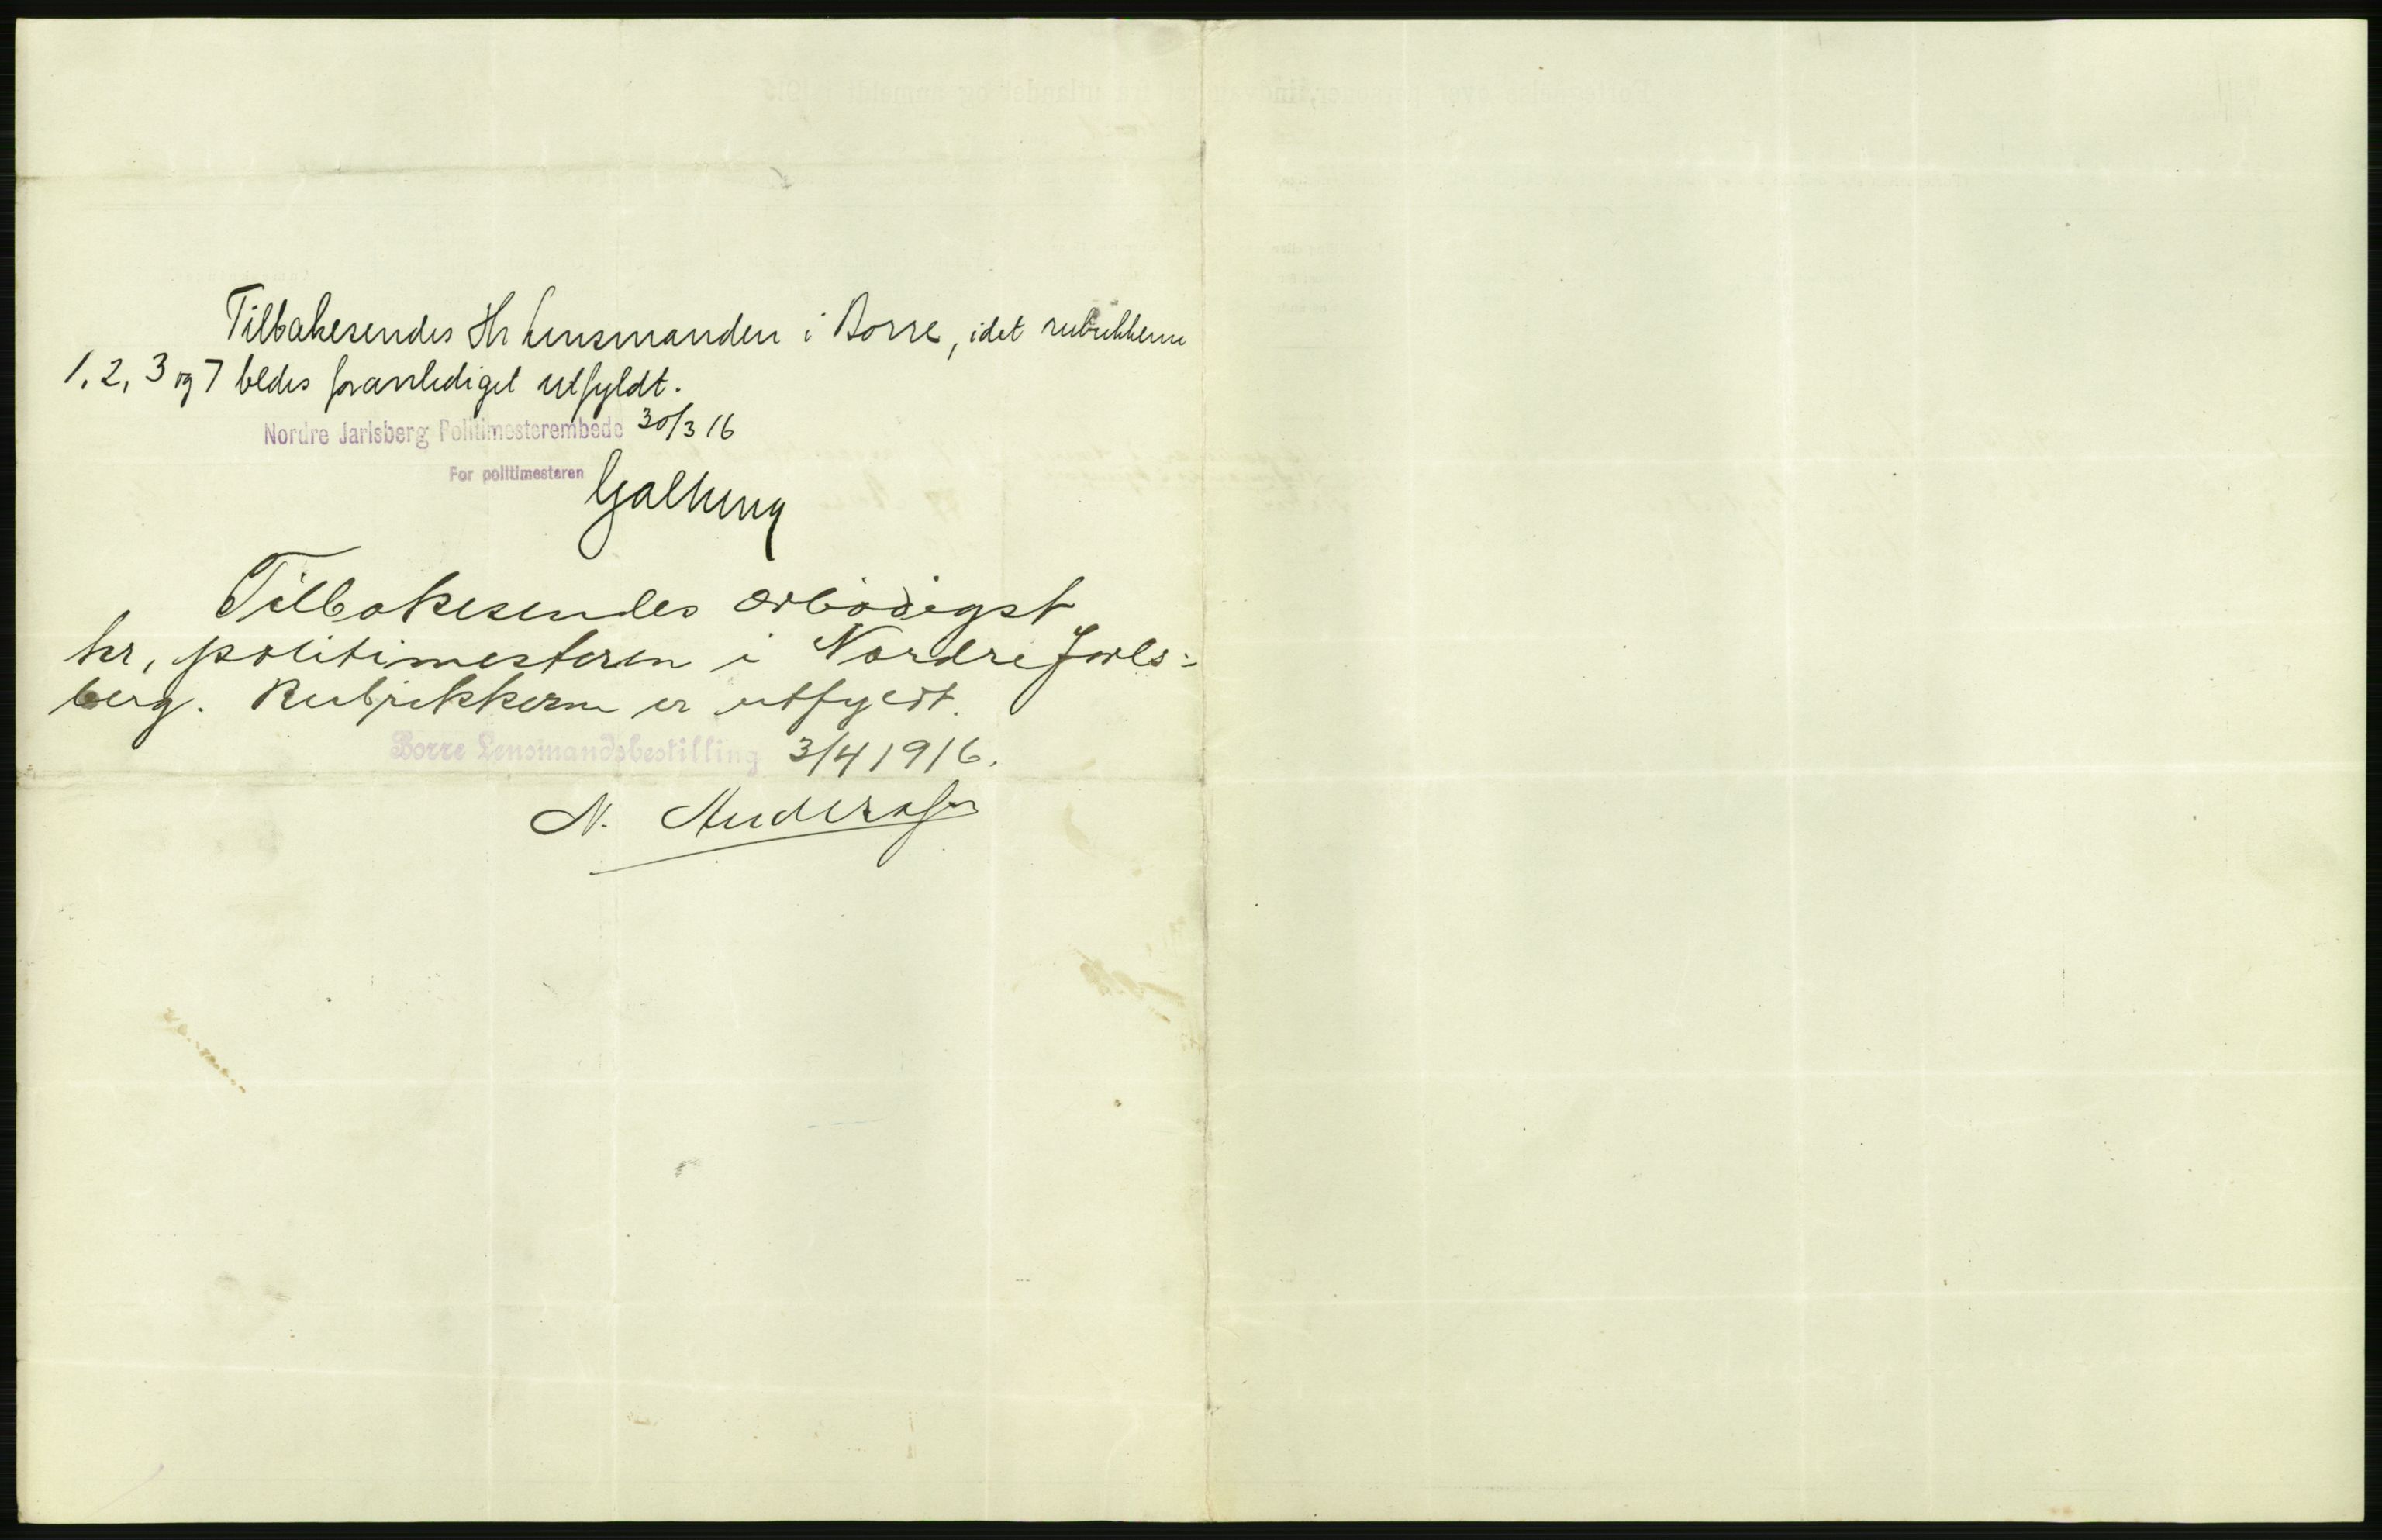 Tilbakesendes Hr Lensmanden i Borre, idet rubrikkerne
1, 2, 3 og 7 bedes foranlediget utfyldt.
Nordre Jarlsberg Politimesterembede 30/3 16
For politimesteren
Galtung
Tilbakesendes ærbödigst
hr, politimesteren i Nordre Jarls=
berg. Rubrikkerne er utfyldt.
Borre Lensmandsbestilling 3/4 1916.
N. Andersen